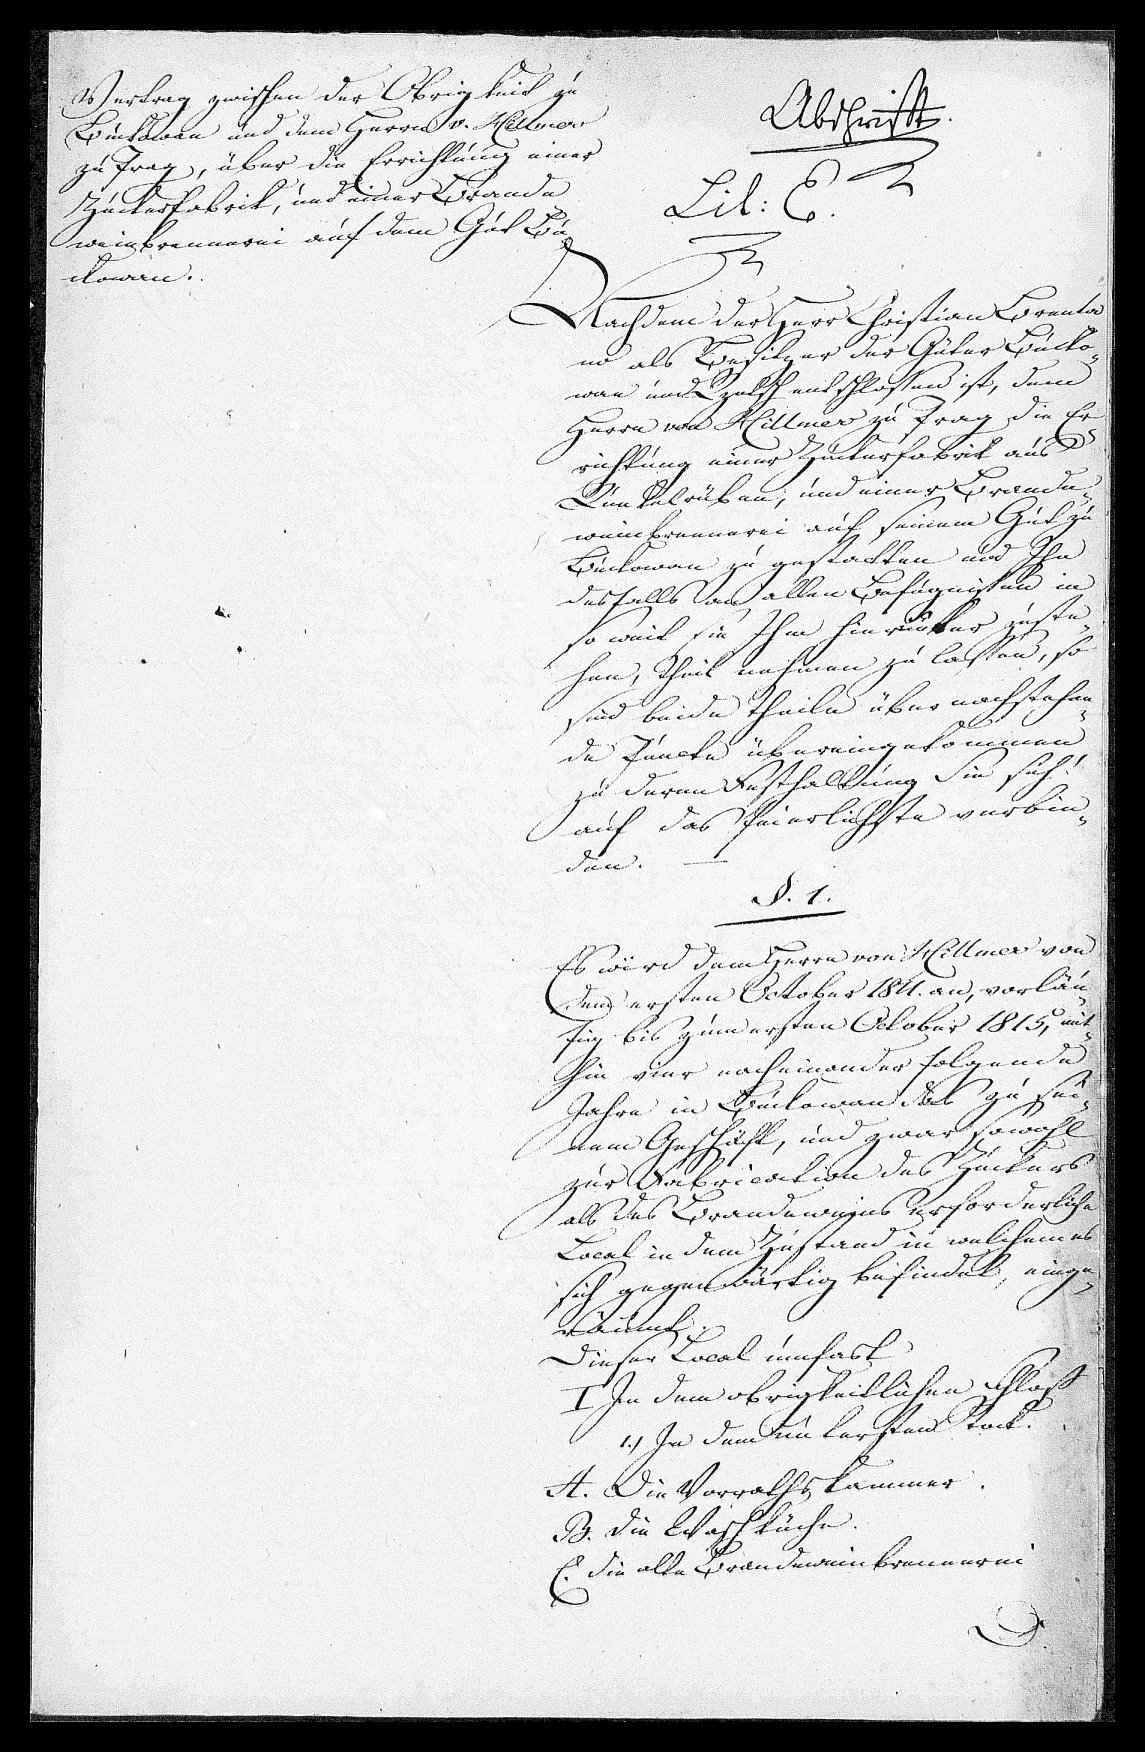 Vertrag zwischen der Obrigkeit zu
Buckowan und dem Herrn v. Hillmer
zu Prag, über die Errichtung einer
Zuckerfabrik, und einer Brandt
weinbrennerei auf dem Gut Bu
ckowan.
Abschrift.
Lit: E.
Nachdem der Herr Christian Brenta
no als Besitzer der Güter Bucko-
wan und entschlossen ist, dem
Herrn von Hillmer zu Prag die Er
richtung einer Zuckerfabrik aus
Runkelrüben, und einer Brandt-
weinbrennerei auf seinem Gut zu
Buckowan zu gestatten und Ihn
desfalls an allen Befugnissen in
so weit sie Ihm hierüber zuste-
hen, theil nehmen zu lassen, so
sind beide Theile über nachstehen-
de Puncte übereingekommen
zu deren Festhaltung Sie sich
auf das feierlichste verbin-
den. —
§. 1.
Es wird dem Herrn von Hillmer von
dem ersten October 1811. an, vorläu-
fig bis zum ersten October 1815, mit-
hin vier nacheinander folgende
Jahre in Buckowan das zu sei-
nem Geschäft, und zwar sowohl
zur Fabrication des Zuckers
als des Brandeweins erforderliche
Local in dem Zustand in welchem es
sich gegenwärtig befindet, einge-
räumt.
Dieser Local umfast
I In dem obrigkeitlichen Schloß
1.) In dem untersten Stock.
A. Die Vorrathskammer.
B. die Waschküche.
C. die alte Brandeweinbrennerei
D.